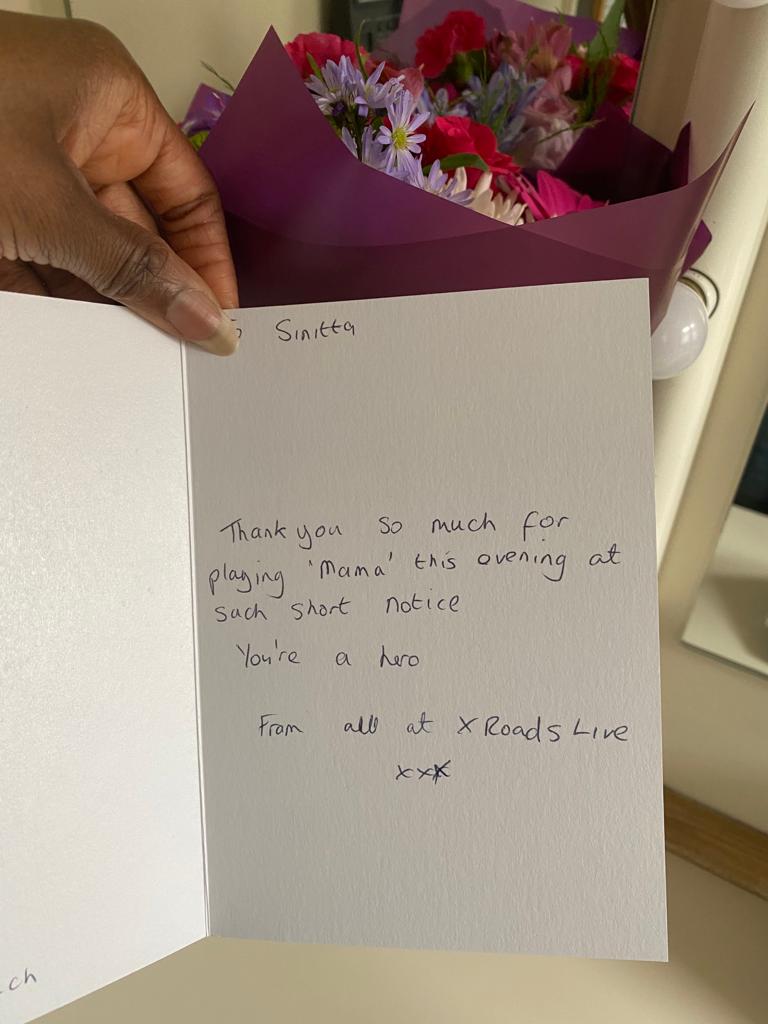 Sinitta
Thank you so much for
playing 'Mama' this evening at
such short notice
You're a hero
From all at X Roads Live
xxx
ch